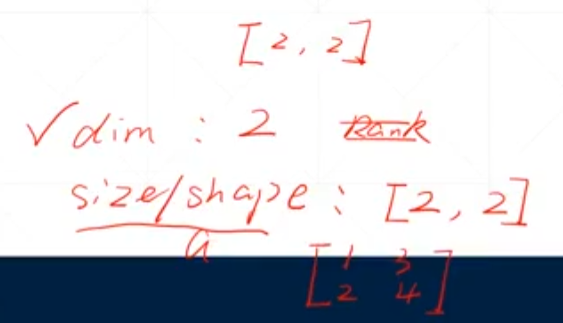 [2, 2]
√ dim : 2 Rank
size/shape : [2, 2]
a
[1 3
2 4]